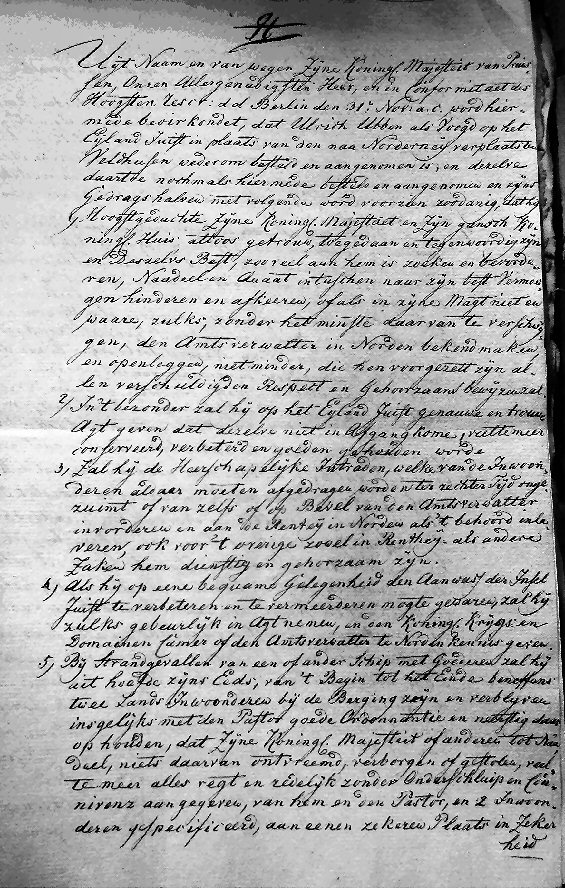 Uijt Naam en van wegen Zijne Koningl. Majesteit van Preus-
sen, Onsen Allergenadigsten Heer, en in Conformiteit des
Hoogsten Rescr: d.d. Berlin den 31: Nov: a.c. word hier-
mede beoirkondet, dat Ulrich Ubben als Voogd op het
Eijland Juist in plaats van den naa Norderneij verplaatsten
Veldhusen wederom besteld en aangenomen is, en dezelve
daartoe nochmals hiermede besteld en aangenomen en zijns
Gedrags halven met volgende word voorzien zoodanig, dat hij
1, Hoogstgedachte Zijne Koningl. Majesteit en Zijn gansch Ko-
ningl. Huis altoos getrouw, toegedaan en tegenwoordig zijn
en Deszelvs Best, zoo veel aan hem is zoeken en bevorde-
ren, Naadeel en Quaat intuschen naar zijn best Vermo-
gen hinderen en afkeeren, of als in zijne Magt niet en
waare, zulks, zonder het minste daarvan te verschwij-
gen, den Amtsverwalter in Norden bekend maken,
en openleggen, niet minder, die hen voorgezett zijn al-
len verschuldigden Respekt en Gehoorzaam bewijzen zal.
2, In't bezonder zal hij op het Eijland Juist genauwe en trouwe
Agt geven dat dezelve niet in Afgang kome, veelte meer
conserveerd, verbeterd en golden gehouden worde
3, Zal hij de Heerschapelijke Intraden, welke van de Inwoon-
deren aldaar moeten afgedragen worden ter rechter Tijd onge-
zuimt of van zelfs of op Bevel van den Amtsverwalter
invorderen en aan de Rentey in Norden als 't behoord enle-
veren, ook voor 't overige zowel in Renthey- als andere
Zaken hem dienstig en gehorzaam zijn.
4, Als hij op eene bequame Gelegenheid den Anwas der Insel
Juist te verbeteren en te vermeerderen mogte gewaren, zal hij
zulks gebeurlijk in Agt nemen, en een Koningl. Krijgs en
Domainen Camer of den Amtsverwalter te Norden kennis geven.
5, Bij Strandgevallen van een of ander Schip met Goederen zal hij
uit hoofde zijns Eeds, van 't Begin tot het Einde beneffens
twee Eilands Inwoonderen bij de Berging zijn en verblijven
insgelijks met den Pastor goede Ordonnantie en neerstig daar
op houden, dat Zijne Koningl. Majesteit of anderen tot Naa-
deel, niets daarvan ontvreemd, verborgen of gestolen, veel
te meer alles regt en redelijk zonder Onderschluip en Con-
nivenz aangegeven, van hem en den Pastor, en 2 Inwoon-
deren gespecificeerd, aan eenen zekeren Plaats in Zeker
heid